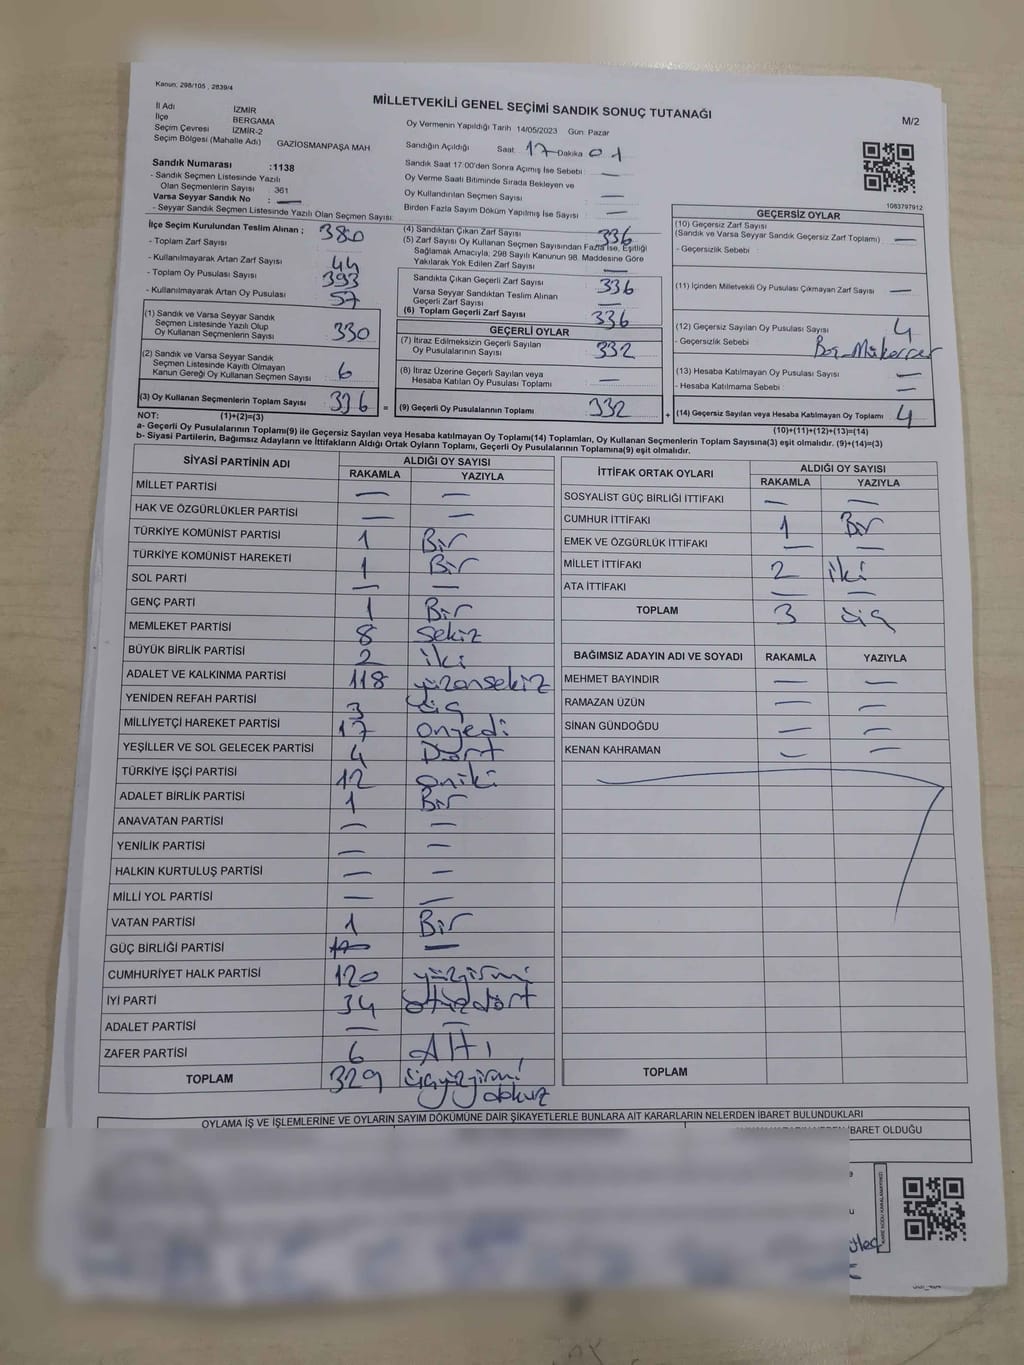 Kanun: 298/105 , 2839/4
MİLLETVEKİLİ GENEL SEÇİMİ SANDIK SONUÇ TUTANAĞI
M/2
İl Adı İZMİR
İlçe BERGAMA
Seçim Çevresi İZMİR-2
Seçim Bölgesi (Mahalle Adı) GAZİOSMANPAŞA MAH
Oy Vermenin Yapıldığı Tarih 14/05/2023 Gün: Pazar
Sandığın Açıldığı Saat 17 Dakika 01
Sandık Saat 17.00'den Sonra Açımış İse Sebebi : —
Oy Verme Saati Bitiminde Sırada Bekleyen ve
Oy Kullandırılan Seçmen Sayısı —
Birden Fazla Sayım Döküm Yapılmış İse Sayısı —
Sandık Numarası :1138
- Sandık Seçmen Listesinde Yazılı
Olan Seçmenlerin Sayısı : 361
Varsa Seyyar Sandık No : —
- Seyyar Sandık Seçmen Listesinde Yazılı Olan Seçmen Sayısı:
1083797912
İlçe Seçim Kurulundan Teslim Alınan ;
- Toplam Zarf Sayısı 380
- Kullanılmayarak Artan Zarf Sayısı 44
- Toplam Oy Pusulası Sayısı 393
- Kullanılmayarak Artan Oy Pusulası 57
(1) Sandık ve Varsa Seyyar Sandık
Seçmen Listesinde Yazılı Olup
Oy Kullanan Seçmenlerin Sayısı 330
(2) Sandık ve Varsa Seyyar Sandık
Seçmen Listesinde Kayıtlı Olmayan
Kanun Gereği Oy Kullanan Seçmen Sayısı 6
(3) Oy Kullanan Seçmenlerin Toplam Sayısı 336 =
(4) Sandıktan Çıkan Zarf Sayısı 336
(5) Zarf Sayısı Oy Kullanan Seçmen Sayısından Fazla İse, Eşitliği
Sağlamak Amacıyla; 298 Sayılı Kanunun 98. Maddesine Göre
Yakılarak Yok Edilen Zarf Sayısı —
Sandıkta Çıkan Geçerli Zarf Sayısı 336
Varsa Seyyar Sandıktan Teslim Alınan
Geçerli Zarf Sayısı —
(6) Toplam Geçerli Zarf Sayısı 336
GEÇERLİ OYLAR
(7) İtiraz Edilmeksizin Geçerli Sayılan
Oy Pusulalarının Sayısı 332
(8) İtiraz Üzerine Geçerli Sayılan veya
Hesaba Katılan Oy Pusulası Toplamı —
(9) Geçerli Oy Pusulalarının Toplamı 332 +
GEÇERSİZ OYLAR
(10) Geçersiz Zarf Sayısı
(Sandık ve Varsa Seyyar Sandık Geçersiz Zarf Toplamı) —
- Geçersizlik Sebebi
(11) İçinden Milletvekili Oy Pusulası Çıkmayan Zarf Sayısı —
(12) Geçersiz Sayılan Oy Pusulası Sayısı 4
- Geçersizlik Sebebi
(13) Hesaba Katılmayan Oy Pusulası Sayısı —
- Hesaba Katılmama Sebebi : —
(14) Geçersiz Sayılan veya Hesaba Katılmayan Oy Toplamı 4
NOT: (1)+(2)=(3) (10)+(11)+(12)+(13)=(14)
a- Geçerli Oy Pusulalarının Toplamı(9) ile Geçersiz Sayılan veya Hesaba katılmayan Oy Toplamı(14) Toplamları, Oy Kullanan Seçmenlerin Toplam Sayısına(3) eşit olmalıdır. (9)+(14)=(3)
b- Siyasi Partilerin, Bağımsız Adayların ve İttifakların Aldığı Ortak Oyların Toplamı, Geçerli Oy Pusulalarının Toplamına(9) eşit olmalıdır.
SİYASİ PARTİNİN ADI ALDIĞI OY SAYISI
RAKAMLA YAZIYLA
MİLLET PARTİSİ — —
HAK VE ÖZGÜRLÜKLER PARTİSİ — —
TÜRKİYE KOMÜNİST PARTİSİ 1 Bir
TÜRKİYE KOMÜNİST HAREKETİ 1 Bir
SOL PARTİ — —
GENÇ PARTİ 1 Bir
MEMLEKET PARTİSİ 8 sekiz
BÜYÜK BİRLİK PARTİSİ 2 iki
ADALET VE KALKINMA PARTİSİ 118 yüzonsekiz
YENİDEN REFAH PARTİSİ 3 üç
MİLLİYETÇİ HAREKET PARTİSİ 17 onyedi
YEŞİLLER VE SOL GELECEK PARTİSİ 4 Dört
TÜRKİYE İŞÇİ PARTİSİ 12 oniki
ADALET BİRLİK PARTİSİ 1 Bir
ANAVATAN PARTİSİ — —
YENİLİK PARTİSİ — —
HALKIN KURTULUŞ PARTİSİ — —
MİLLİ YOL PARTİSİ — —
VATAN PARTİSİ 1 Bir
GÜÇ BİRLİĞİ PARTİSİ —
CUMHURİYET HALK PARTİSİ 120 yüzyirmi
İYİ PARTİ 34 otuzdört
ADALET PARTİSİ — —
ZAFER PARTİSİ 6 Altı
TOPLAM 329 üçyüzyirmi
dokuz
İTTİFAK ORTAK OYLARI ALDIĞI OY SAYISI
RAKAMLA YAZIYLA
SOSYALİST GÜÇ BİRLİĞİ İTTİFAKI — —
CUMHUR İTTİFAKI 1 Bir
EMEK VE ÖZGÜRLÜK İTTİFAKI — —
MİLLET İTTİFAKI 2 iki
ATA İTTİFAKI — —
TOPLAM 3 üç
BAĞIMSIZ ADAYIN ADI VE SOYADI RAKAMLA YAZIYLA
MEHMET BAYINDIR — —
RAMAZAN ÜZÜN — —
SİNAN GÜNDOĞDU — —
KENAN KAHRAMAN — —
TOPLAM
OYLAMA İŞ VE İŞLEMLERİNE VE OYLARIN SAYIM DÖKÜMÜNE DAİR ŞİKAYETLERLE BUNLARA AİT KARARLARIN NELERDEN İBARET BULUNDUKLARI
İBARET OLDUĞU